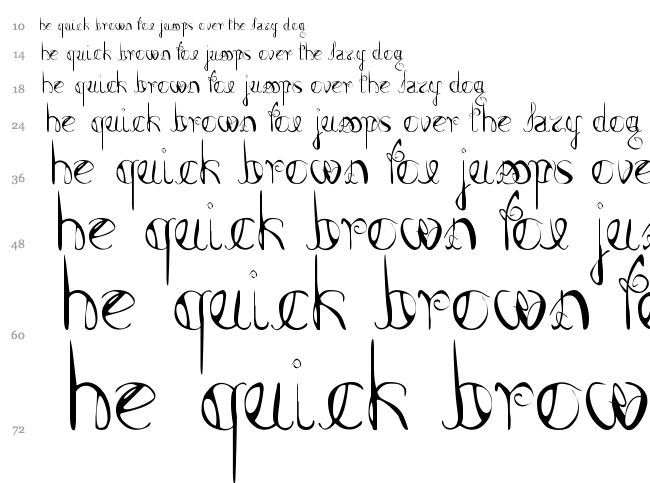 10 he quick brown fox jumps over the lazy dog
14 he quick brown fox jumps over the lazy dog
18 he quick brown fox jumps over the lazy dog
24 he quick brown fox jumps over the lazy dog
36 he quick brown fox jumps ove
48 he quick brown fox ju
60 he quick brown f
72 he quick brow